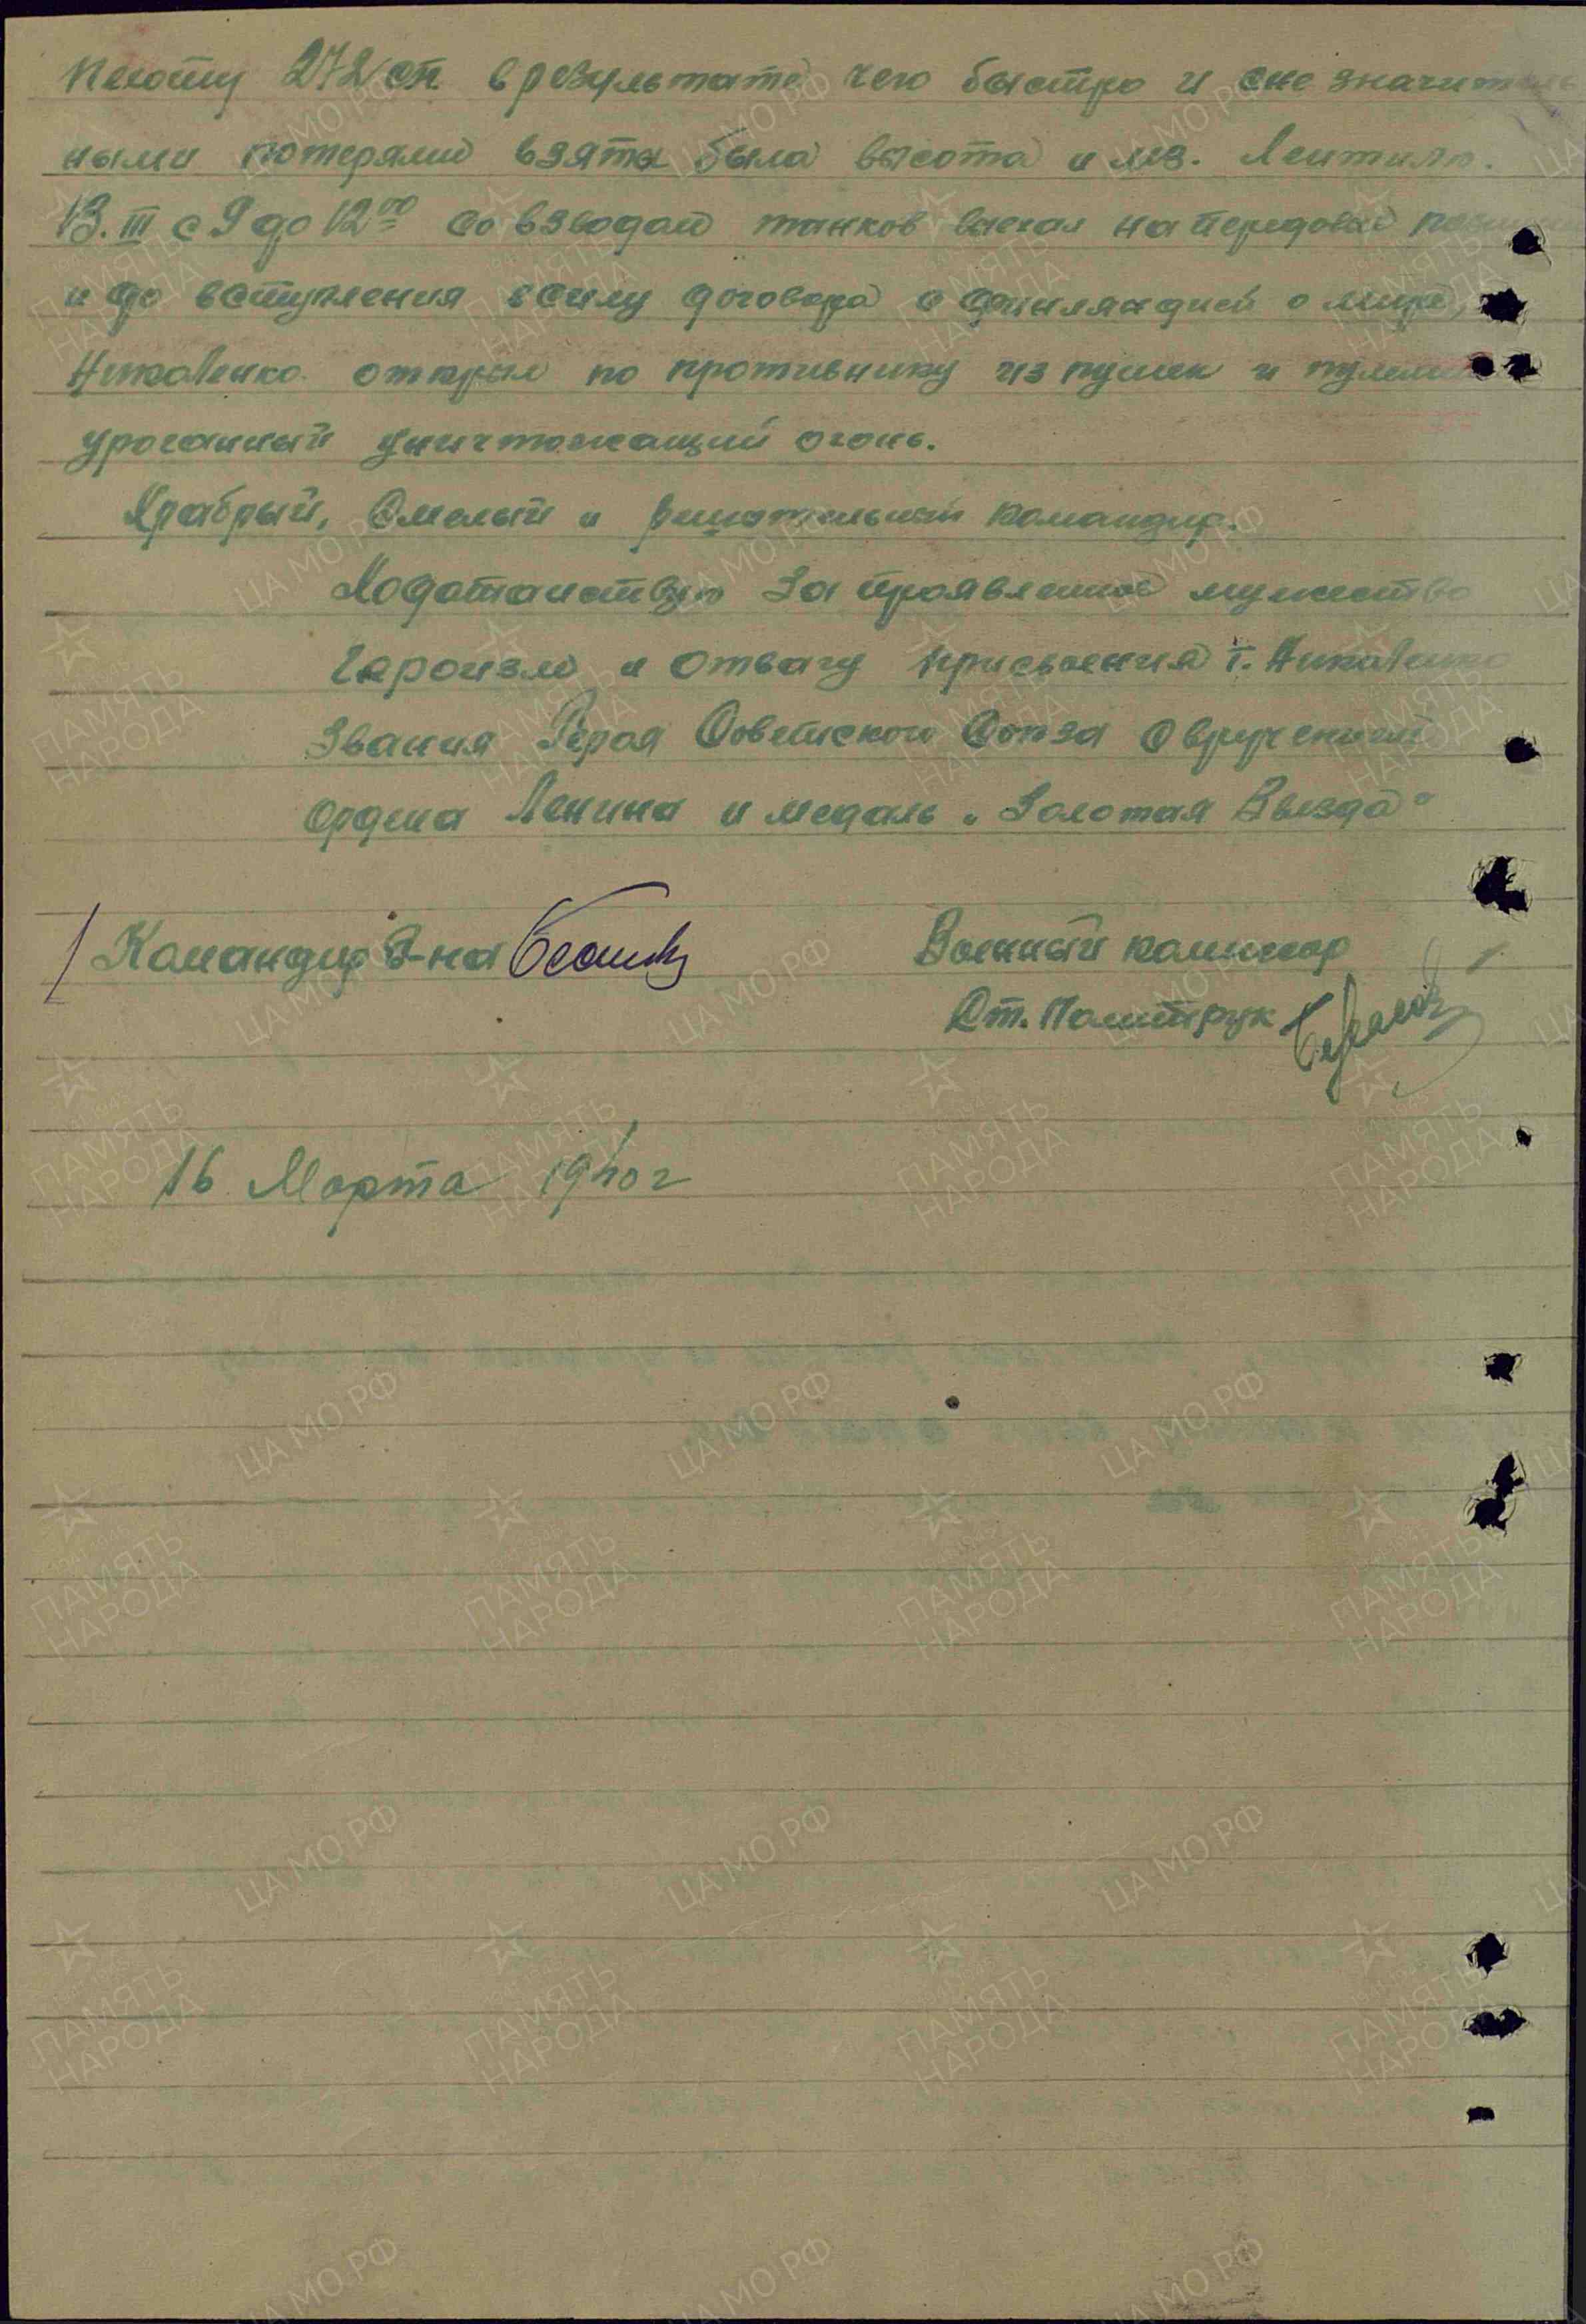 пехоту 272 сп. в результате чего быстро и с не значитель
ными потерями взята была высота и мз.
13.III с 9 до 12⁰⁰ со взводом танков выехал на передовые
и до вступления в силу договора с Финляндией о мире,
открыл по противнику из пушек и
ураганный уничтожающий огонь.
Храбрый, Смелый и решительный командир.
Ходатайствую за проявленное мужество
героизм и отвагу присвоения т.
Звания Героя Советского Союза с вручением
ордена Ленина и медаль „Золотая Звезда"
Командир б-на
Военный комиссар
Ст. Политрук
16 Марта 1940 г
ПАМЯТЬ НАРОДА
ЦА МО РФ